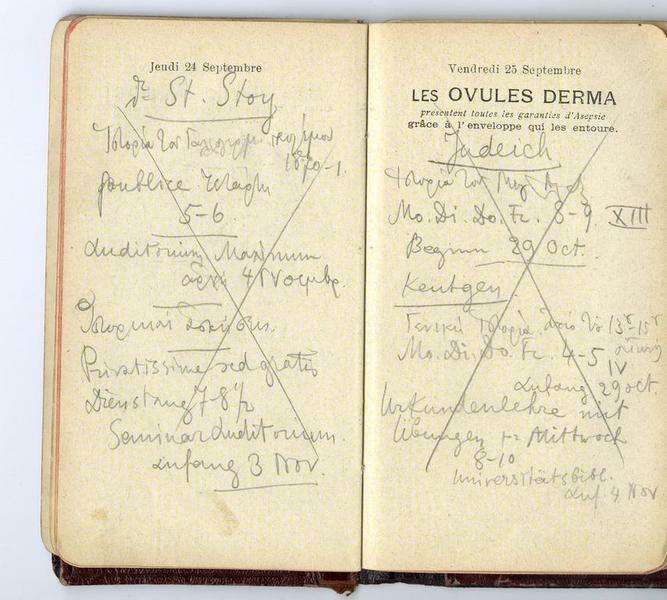 Jeudi 24 Septembre
St. Stoy
Ἱστορία τοῦ
1870-1.
publice
5-6.
Auditorium Maximum
ἀρχὴ 4 Νοεμβρ.
Privatissime sed gratis
Dienstag 7-8½
Seminar Auditorium.
Anfang 3 Nov.
Vendredi 25 Septembre
LES OVULES DERMA
présentent toutes les garanties d'Asepsie
grâce à l'enveloppe qui les entoure.
Judeich
Ἱστορία τοῦ
Mo. Di. Do. Fr. 8-9 XIII
Beginn 29 Oct.
Keutgen
Γενικὴ Ἱστορία ἀπὸ τοῦ 13-15
Mo. Di. Do. Fr. 4-5
IV
Anfang 29 oct.
Urkundenlehre mit
Übungen Mittwoch
8-10
Universitätsbibl.
Anf. 4 Nov